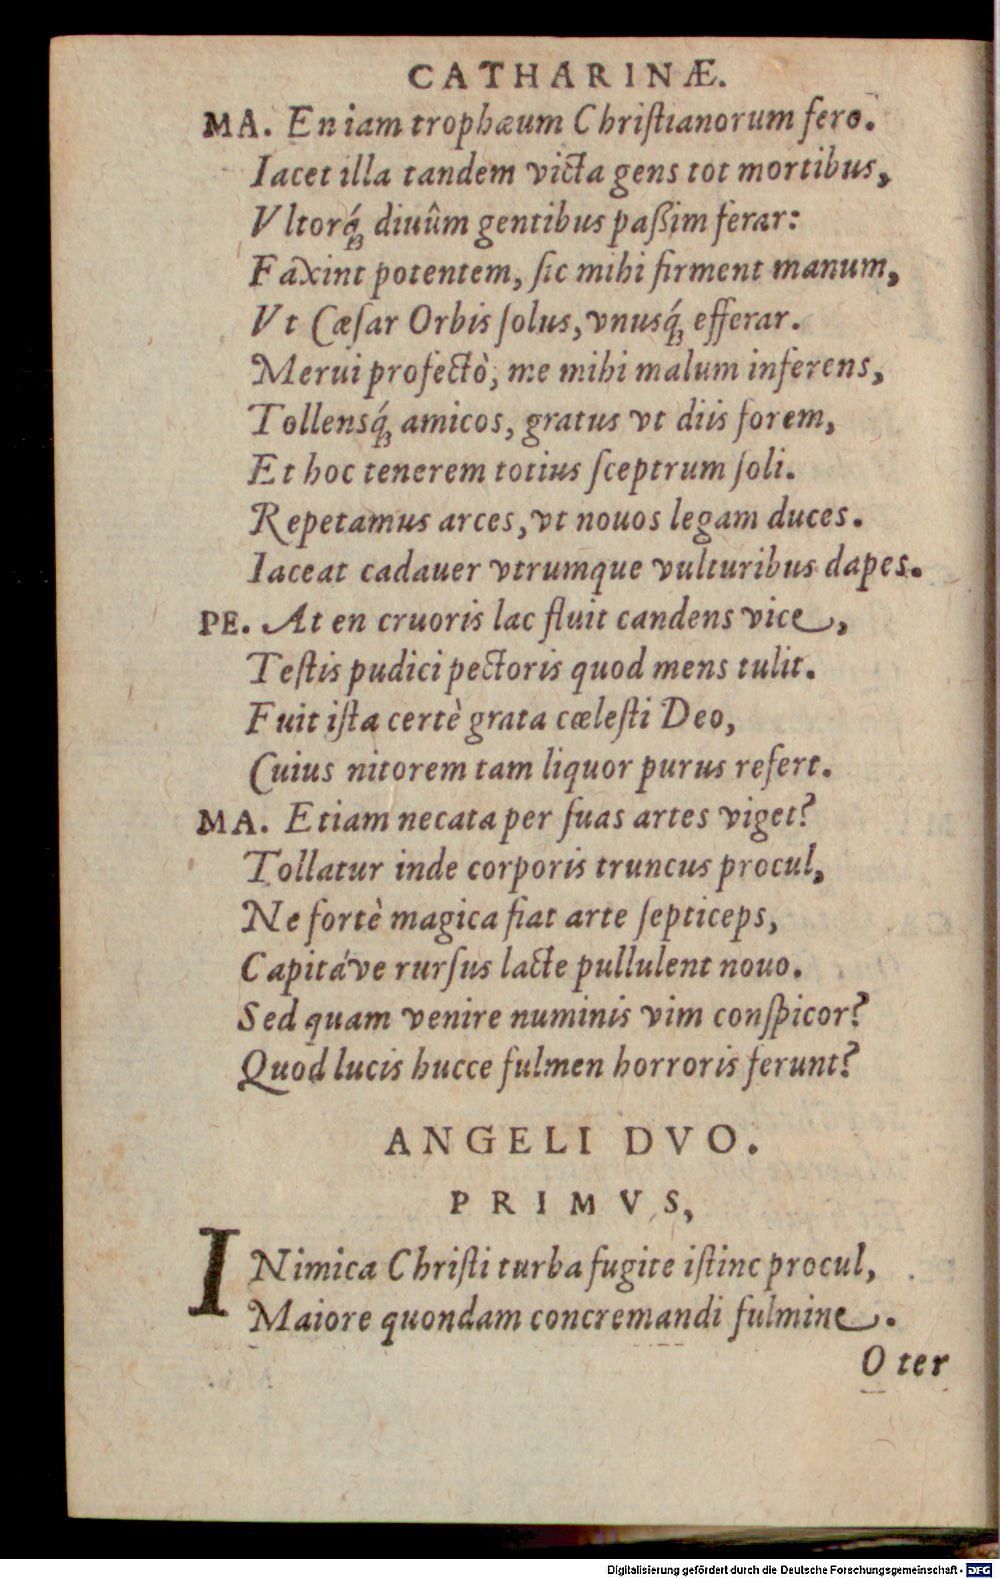 CATHARINÆ.
MA. En iam trophæum Christianorum fero.
Iacet illa tandem victa gens tot mortibus,
Vltorq́ꝫ diuûm gentibus paßim ferar:
Faxint potentem, sic mihi firment manum,
Vt Cæsar Orbis solus, vnusq́ꝫ efferar.
Merui profectò, me mihi malum inferens,
Tollensq́ꝫ amicos, gratus vt diis forem,
Et hoc tenerem totius sceptrum soli.
Repetamus arces, vt nouos legam duces.
Iaceat cadauer vtrumque vulturibus dapes.
PE. At en cruoris lac fluit candens vice,
Testis pudici pectoris quod mens tulit.
Fuit ista certè grata cælesti Deo,
Cuius nitorem tam liquor purus refert.
MA. Etiam necata per suas artes viget?
Tollatur inde corporis truncus procul,
Ne fortè magica fiat arte septiceps,
Capitáve rursus lacte pullulent nouo.
Sed quam venire numinis vim conspicor?
Quod lucis hucce fulmen horroris ferunt?
ANGELI DVO.
PRIMVS,
INimica Christi turba fugite istinc procul,
Maiore quondam concremandi fulmine.
O ter
Digitalisierung gefördert durch die Deutsche Forschungsgemeinschaft - DFG